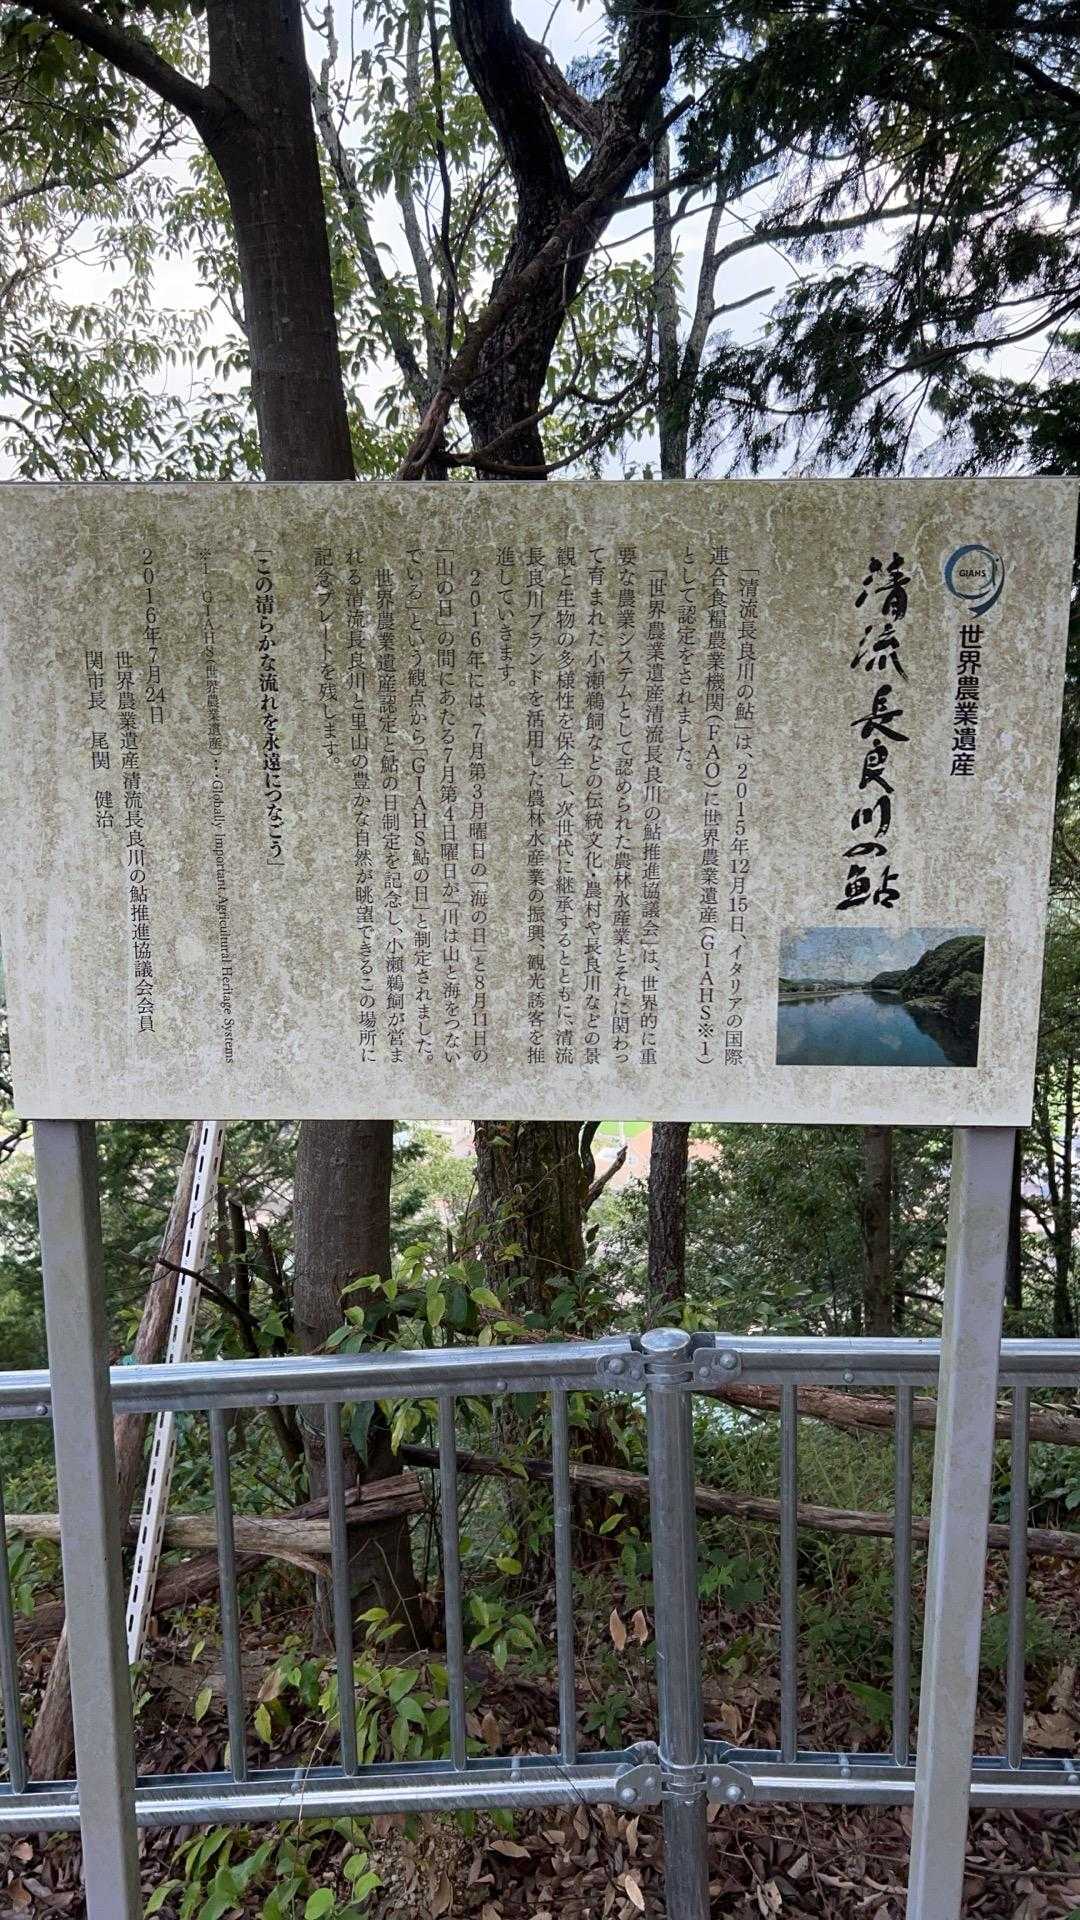 GIAHS
世界農業遺産
清流長良川の鮎
「清流長良川の鮎」は、2015年12月15日、イタリアの国際
連合食糧農業機関(FAO)に世界農業遺産(GIAHS※1)
として認定をされました。
「世界農業遺産清流長良川の鮎推進協議会」は、世界的に重
要な農業システムとして認められた農林水産業とそれに関わっ
て育まれた小瀬鵜飼などの伝統文化・農村や長良川などの景
観と生物の多様性を保全し、次世代に継承するとともに、清流
長良川ブランドを活用した農林水産業の振興、観光誘客を推
進していきます。
2016年には、7月第3月曜日の「海の日」と8月11日の
「山の日」の間にあたる7月第4日曜日が「川は山と海をつない
でいる」という観点から「GIAHS鮎の日」と制定されました。
世界農業遺産認定と鮎の日制定を記念し、小瀬鵜飼が営ま
れる清流長良川と里山の豊かな自然が眺望できるこの場所に
記念プレートを残します。
「この清らかな流れを永遠につなごう」
※1 GIAHS(世界農業遺産)：Globally Important Agricultural Heritage Systems
2016年7月24日
世界農業遺産清流長良川の鮎推進協議会会員
関市長 尾関 健治